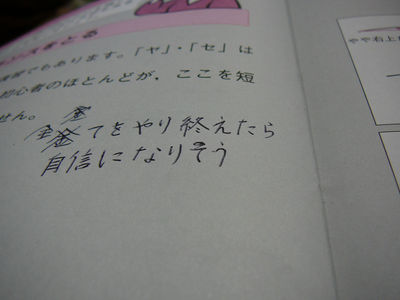 ンスをとる
練習でもあります。「ヤ」・「セ」は
初心者のほとんどが、ここを短
せん。
全てをやり終えたら
自信になりそう
やや右上